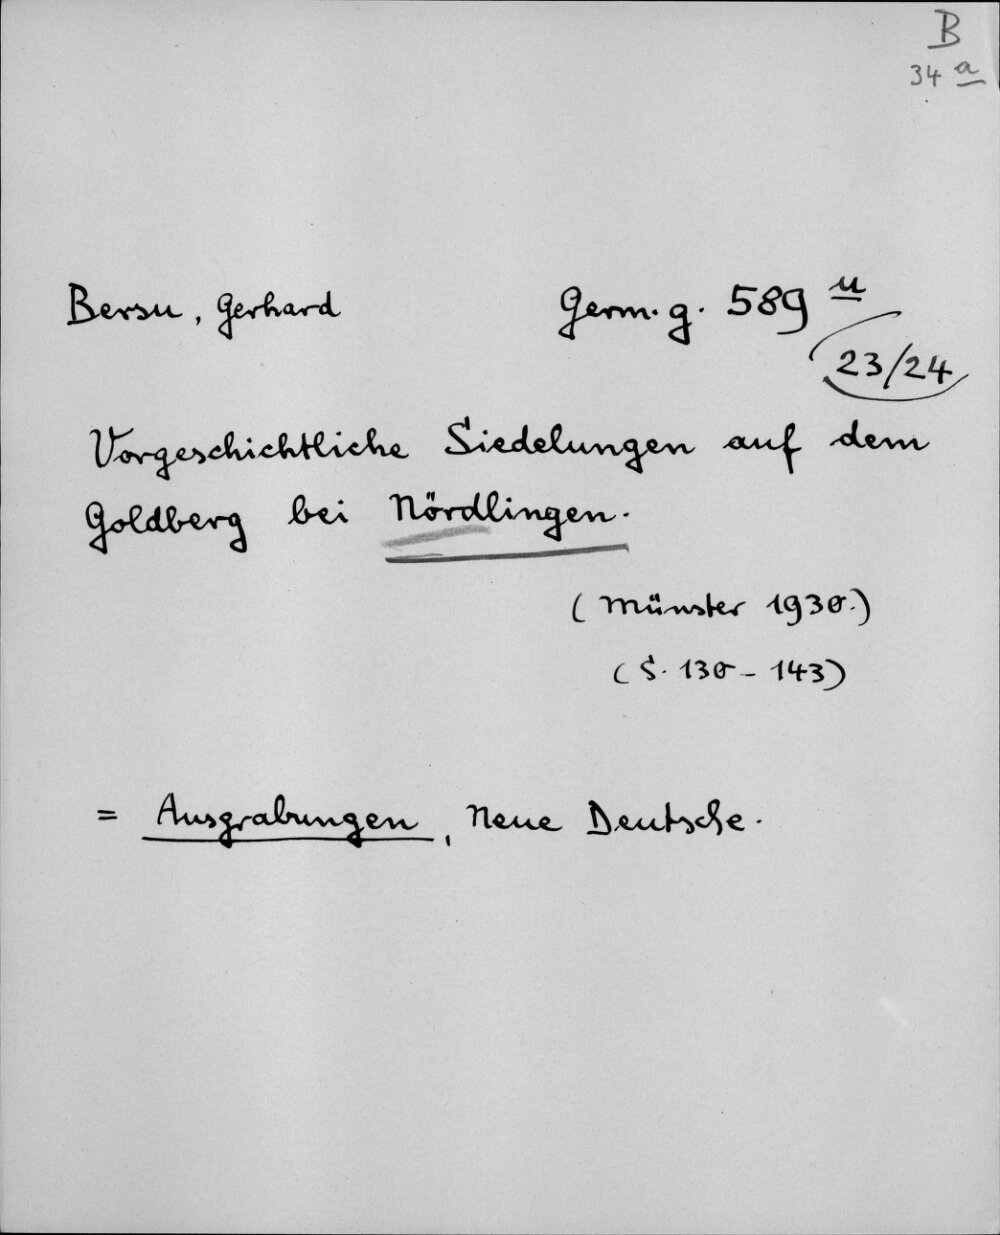 B
34 a
Bersu, Gerhard Germ. g. 589 u
23/24
Vorgeschichtliche Siedelungen auf dem
Goldberg bei Nördlingen.
(Münster 1930.)
(S. 130 - 143)
= Ausgrabungen, Neue Deutsche.